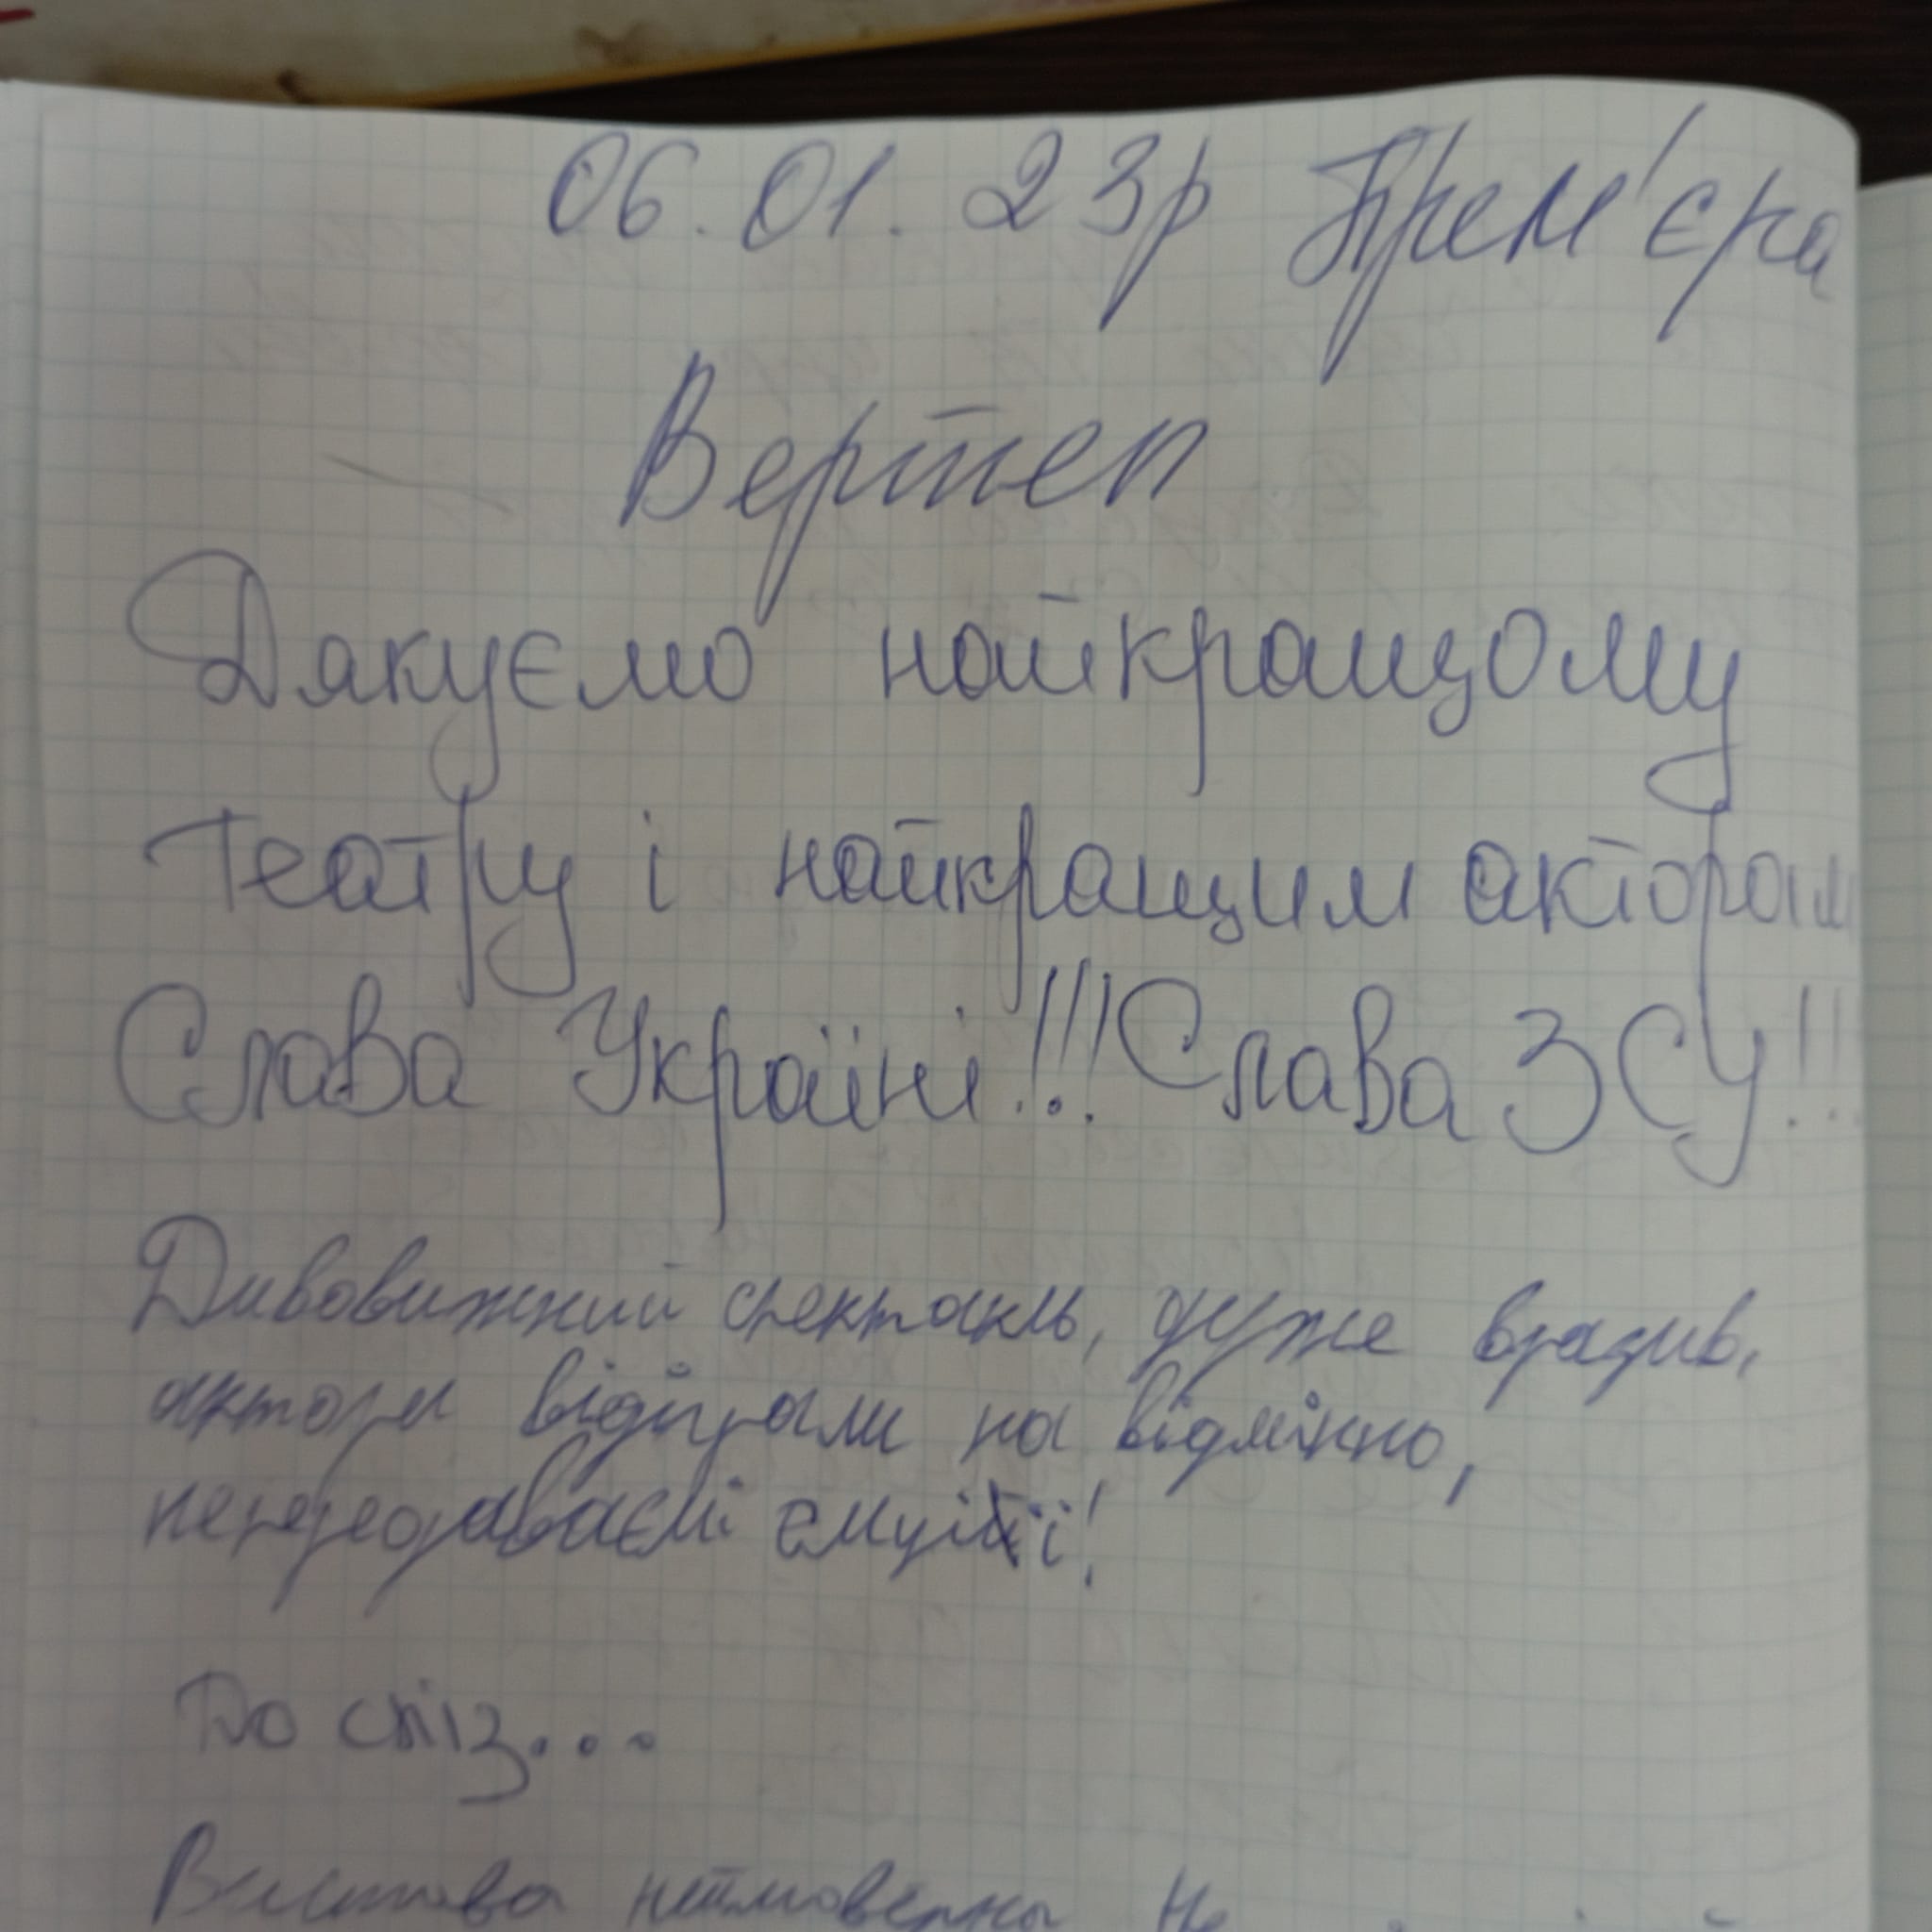 06.01.23р Прем'єра
Вертеп
Дякуємо найкращому
театру і найкращим акторам
Слава Україні!!! Слава ЗСУ!!!
Дивовижний спектакль, дуже вразив,
актори відіграли на відмінно,
непередаваємі емуції!
До сліз...
Вистава неймовірна Не